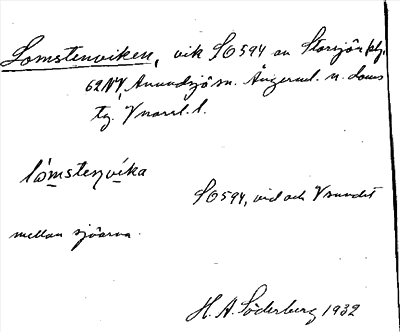 Lomstenviken, vik SO 594 av Storsjön kbl.
62 NV, Anundsjö sn. Ångerml. n. doms
tg. Vnorrl. l.
lómstenvíka
SO 594, vid och V sundet
mellan sjöarna.
H. A. Söderberg 1932